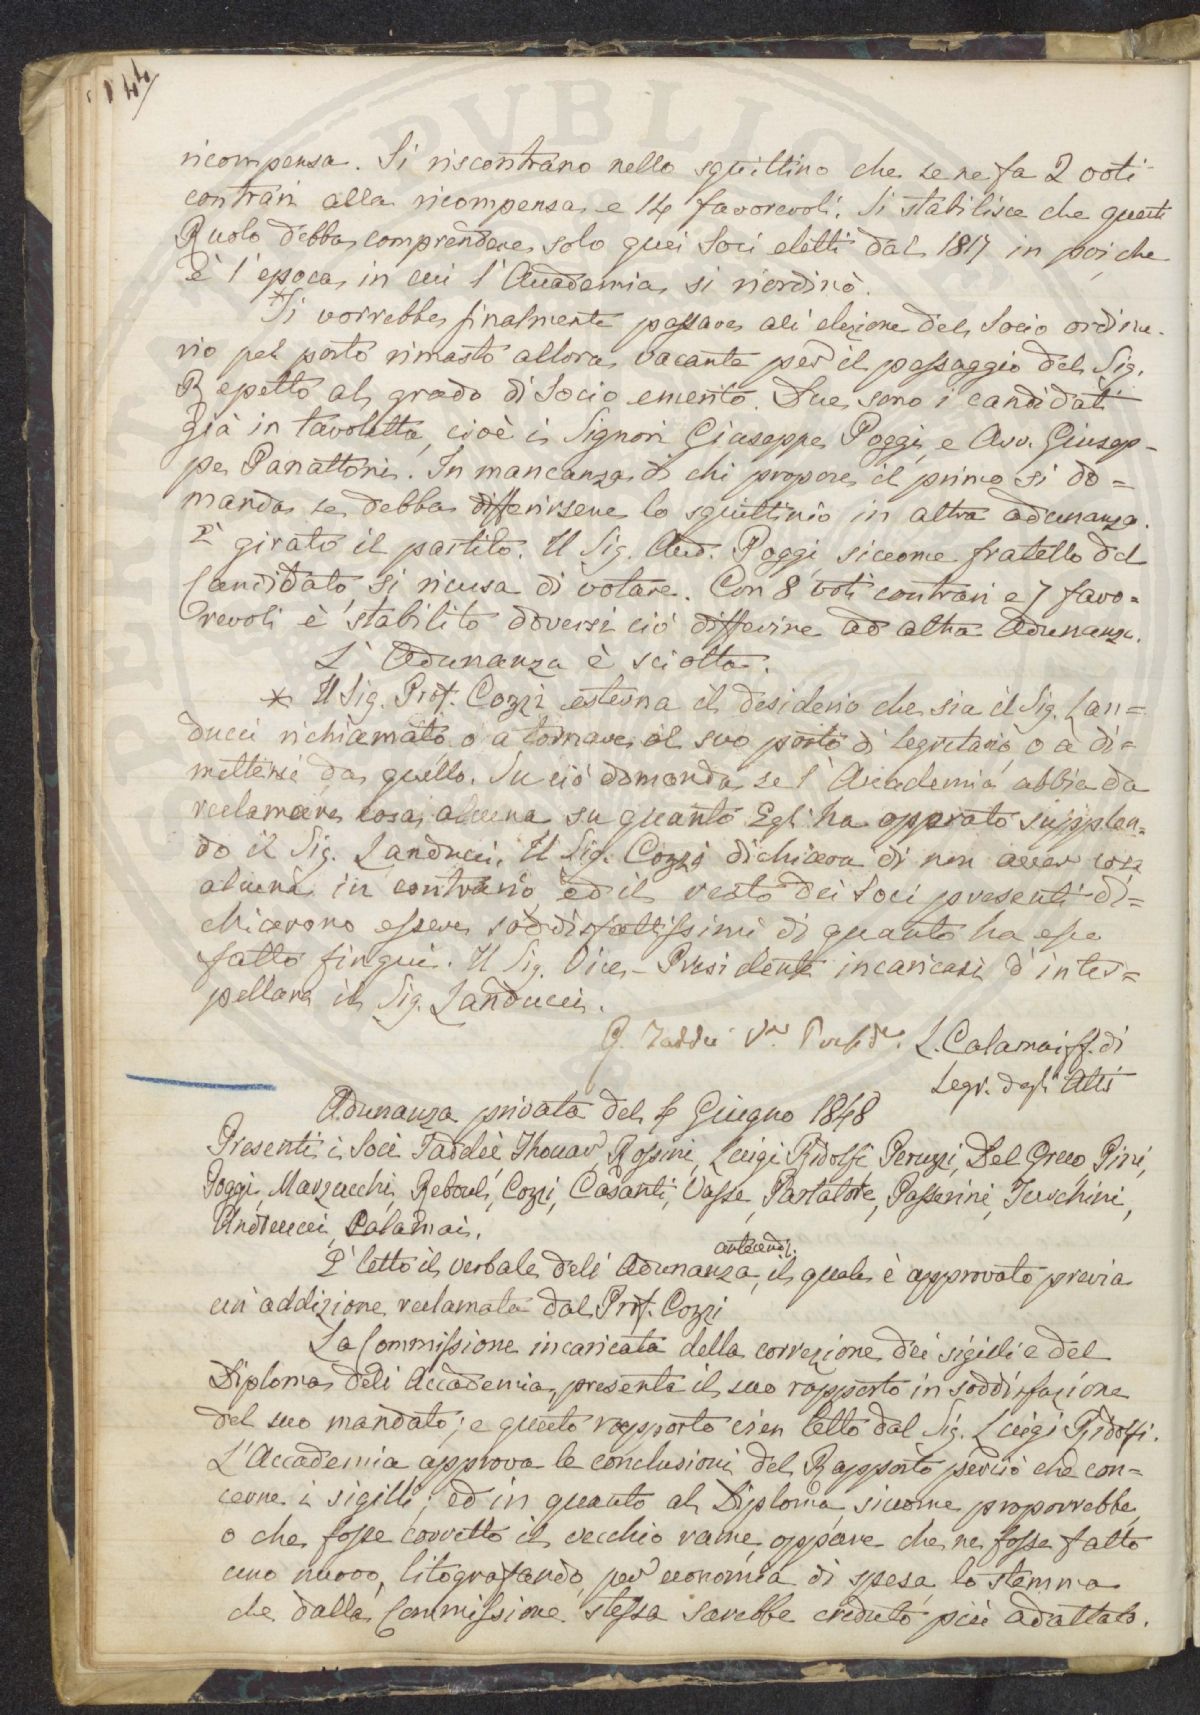 144
ricompensa. Si riscontrano nello squittino che se ne fa 2 voti
contrari alla ricompensa e 14 favorevoli. Si stabilisce che questo
Ruolo debba comprendere solo quei Soci eletti dal 1817 in poi, che
è l'epoca in cui l'Accademia si riordinò.
* Si vorrebbe finalmente passare all'elezione del Socio ordina-
rio pel posto rimasto allora vacante per il passaggio del Sig.
Repetti al grado di Socio emerito. Due sono i candidati
già in tavoletta, cioè i Signori Giuseppe Poggi, e Avv. Giusep-
pe Panattoni. In mancanza di chi propose il primo si do=
manda se debba differirsene lo squittinio in altra adunanza.
È girato il partito. Il Sig. Aud. Poggi, siccome fratello del
Candidato, si ricusa di votare. Con 8 voti contrari e 7 favo=
revoli è stabilito doversi ciò differire ad altra Adunanza.
L'Adunanza è sciolta.
* Il Sig. Prof. Cozzi esterna il desiderio che sia il Sig. Lan=
ducci richiamato o a tornare al suo posto di Segretario, o a di=
mettersi da quello. Su ciò domanda se l'Accademia abbia da
reclamare cosa alcuna su quanto Egli ha operato supplen=
do il Sig. Landucci. Il Sig. Cozzi dichiara di non aver cosa
alcuna in contrario, ed il resto dei Soci presenti di=
chiarono essere soddisfattissimi di quanto ha esso
fatto finqui. Il Sig. Vice-Presidente incaricasi d'inter=
pellare il Sig. Landucci.
G. Taddei Ve. Presidte. L. Calamai ff. di
Segr. degli Atti
Adunanza privata del 4 Giugno 1848
Presenti i Soci Taddei, Thouar, Rossini, Luigi Ridolfi, Peruzzi, Del Greco, Pini,
Poggi, Marzucchi, Reboul, Cozzi, Casanti, Vasse, Parlatore, Passerini, Turchini,
Andreucci, Calamai.
È letto il verbale dell'Adunanza antecendte. il quale è approvato previa
un'addizione reclamata dal Prof. Cozzi
La Commissione incaricata della correzione dei sigilli e del
Diploma dell'Accademia, presenta il suo rapporto in soddisfazione
del suo mandato; e questo rapporto vien letto dal Sig. Luigi Ridolfi.
L'Accademia approva le conclusioni del Rapporto perciò che con=
cerne i sigilli; ed in quanto al Diploma, siccome proporrebbe
o che fosse corretto il vecchio rame, oppure che ne fosse fatto
uno nuovo, litografando, per economia di spesa, lo stemma
che dalla Commissione stessa sarebbe creduto più adattato.